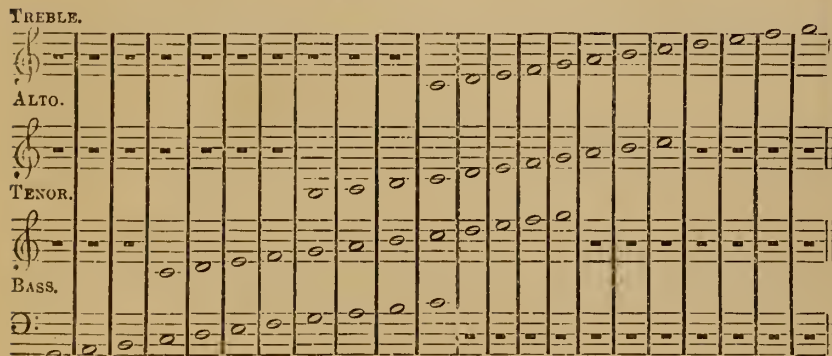 TREBLE.
ALTO.
TENOR.
BASS.